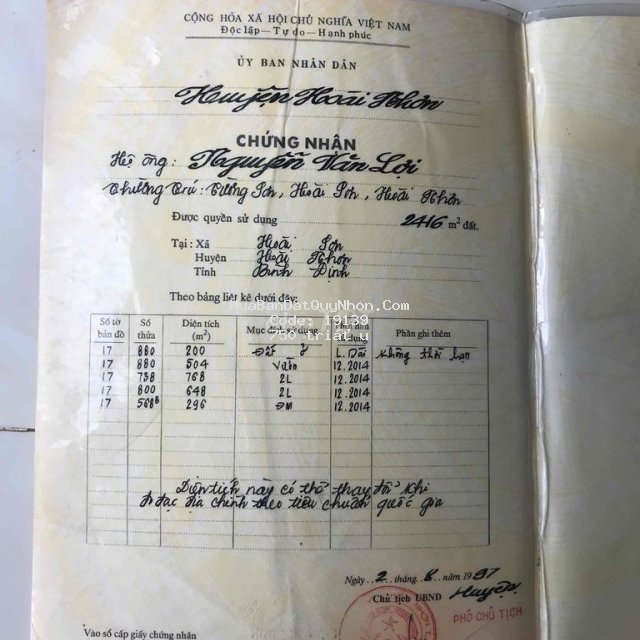 CỘNG HÒA XÃ HỘI CHỦ NGHĨA VIỆT NAM
Độc lập — Tự do — Hạnh phúc
ỦY BAN NHÂN DÂN
Huyện Hoài Nhơn
CHỨNG NHẬN
Hộ ông: Nguyễn Văn Lợi
Thường Trú: Tường Sơn, Hoài Sơn, Hoài Nhơn
Được quyền sử dụng 2416 m² đất.
Tại: Xã Hoài Sơn
Huyện Hoài Nhơn
Tỉnh Bình Định
Theo bảng liệt kê dưới đây
MuaBanDatQuyNhon.Com
Code: 19139
750 triệu
Số tờ bản đồ Số thửa Diện tích (m²) Mục đích sử dụng Phần ghi thêm
17 880 200 Đất ở L. Dài Không thời hạn
17 880 504 Vườn 12.2014
17 738 768 2L 12.2014
17 800 648 2L 12.2014
17 568B 296 ĐM 12.2014
Diện tích này có thể thay đổi khi
đo đạc địa chính theo tiêu chuẩn quốc gia
Ngày 2 tháng 8 năm 1997
Chủ tịch UBND Huyện
PHÓ CHỦ TỊCH
Vào sổ cấp giấy chứng nhận